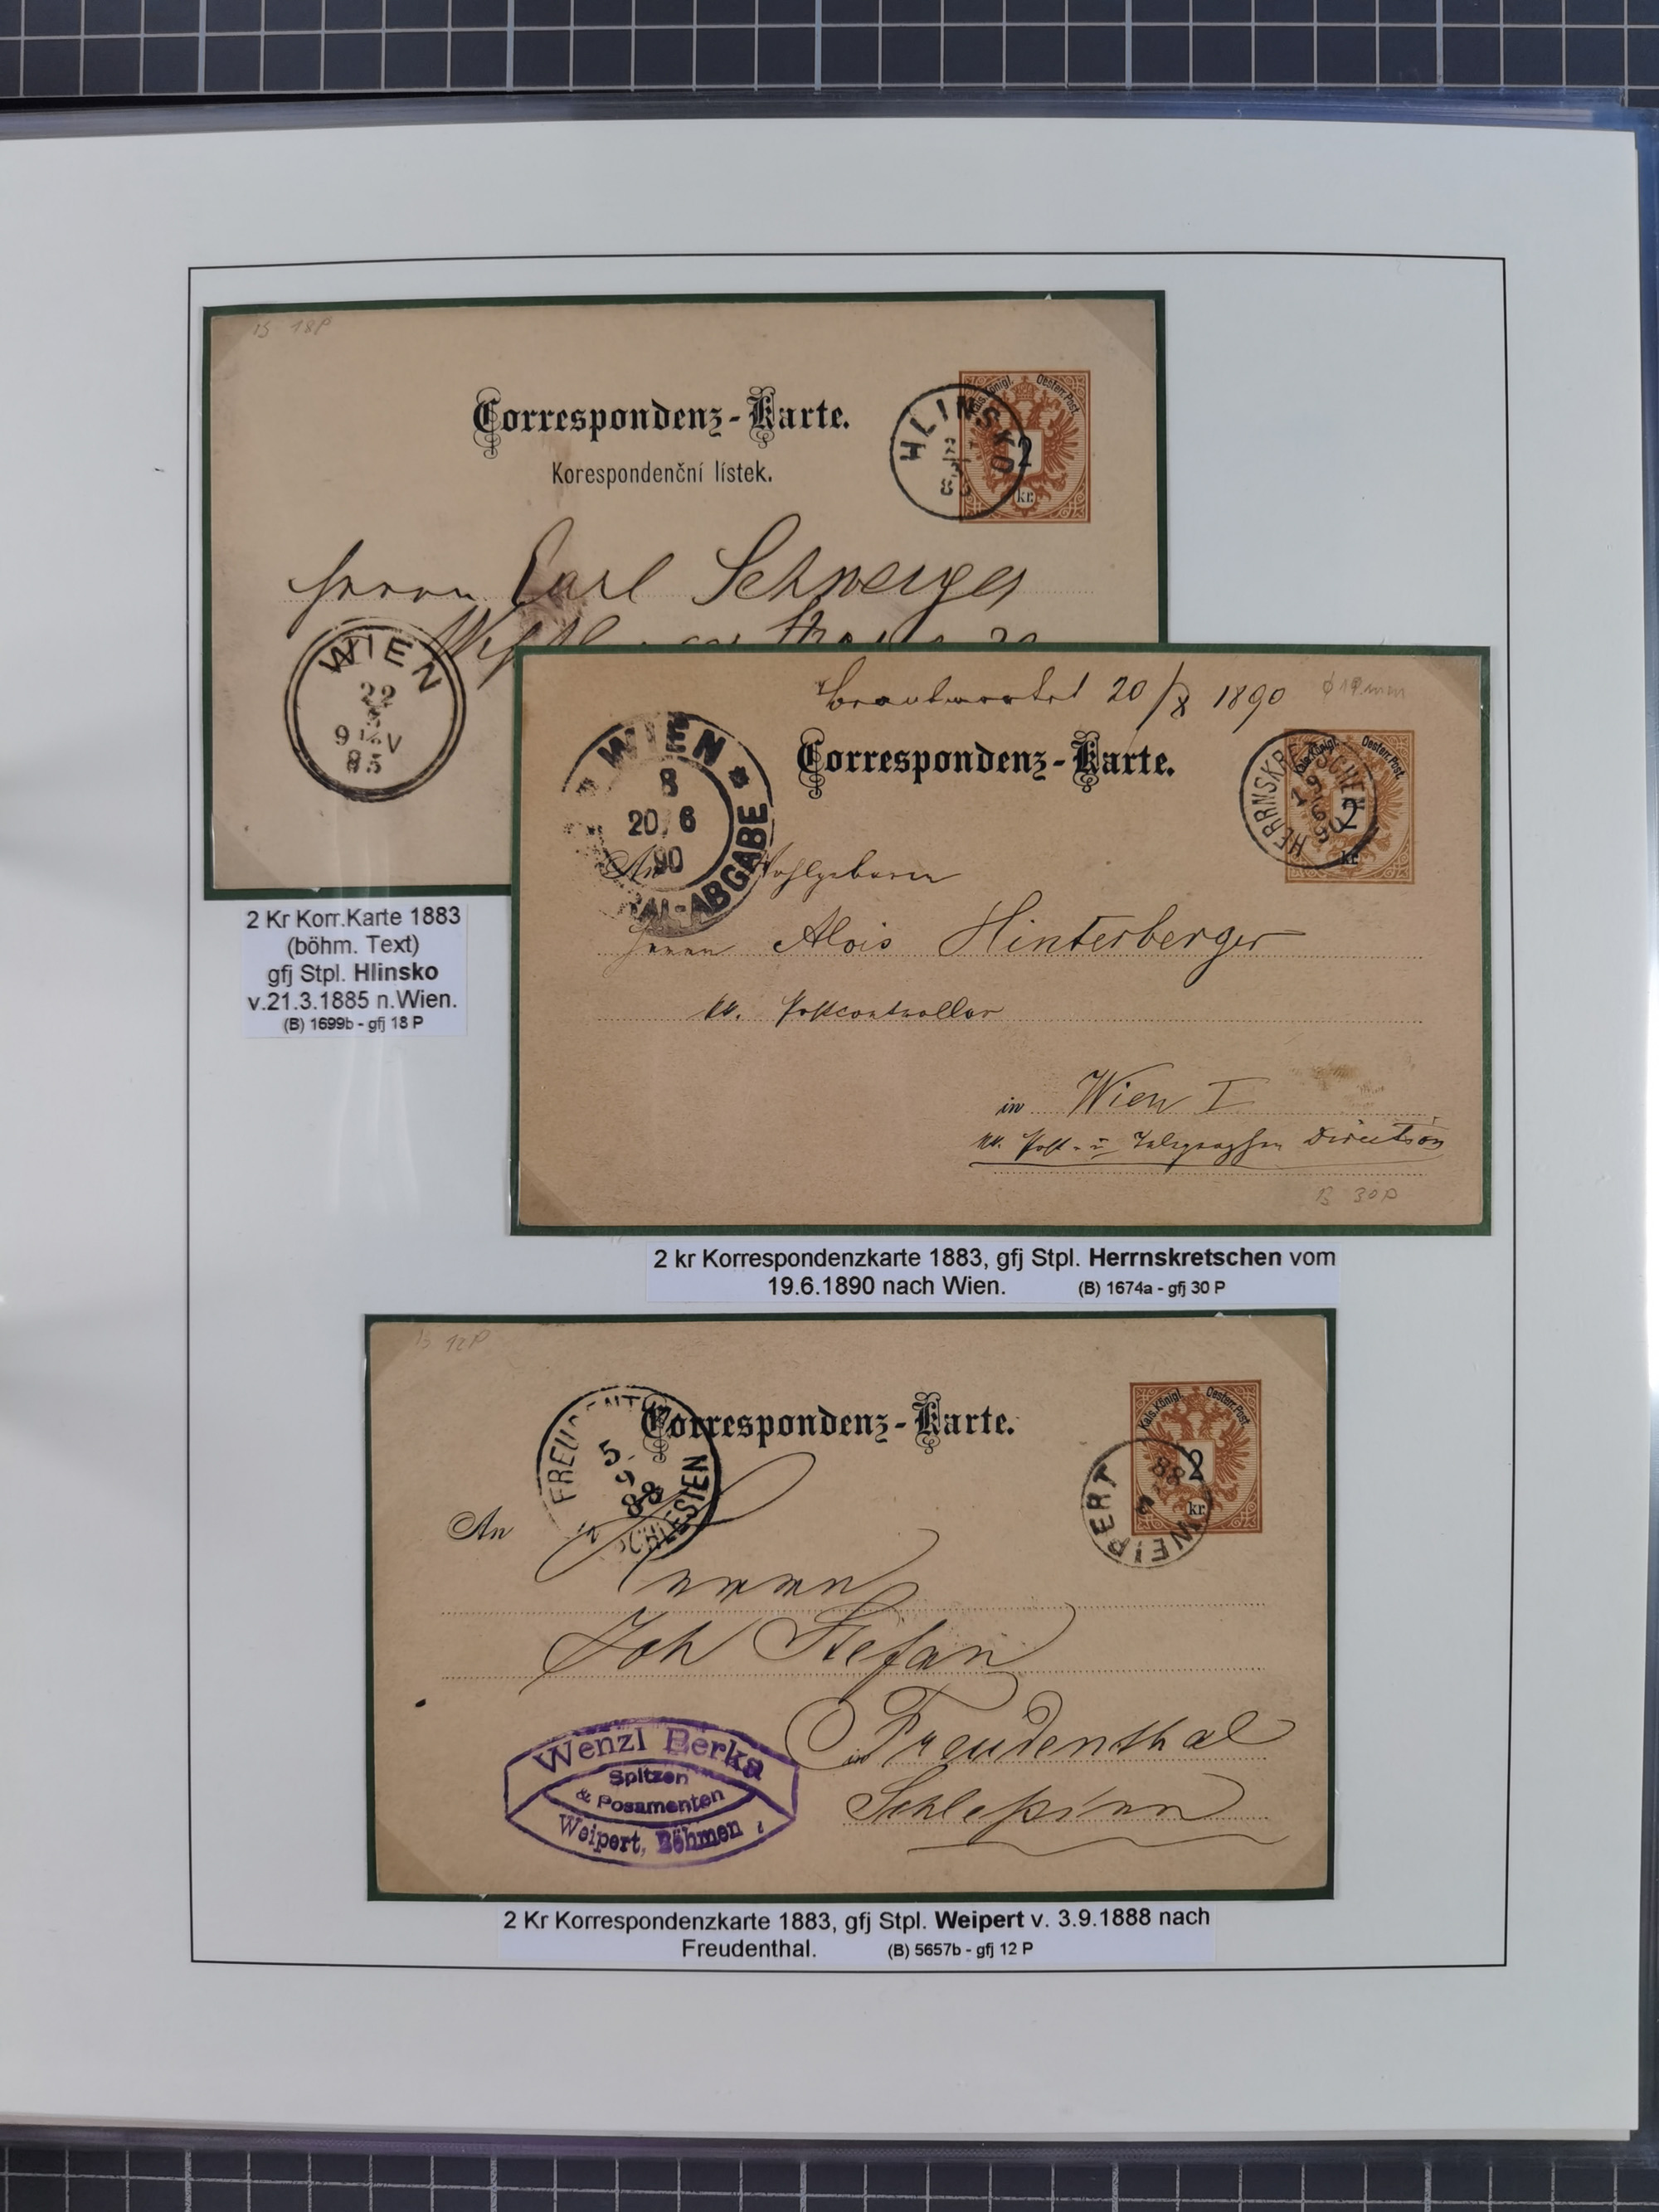 B 18P
Correspondenz-Karte.
Korespondenční lístek.
Kais. Königl. Oesterr. Post.
2
kr.
HLINSKO
85
Herrn Carl Schweiger
WIEN
22
3
9 V
85
2 Kr Korr.Karte 1883
(böhm. Text)
gfj Stpl. Hlinsko
v.21.3.1885 n.Wien.
(B) 1699b - gfj 18 P
Beantwortet 20/X 1890
Correspondenz-Karte.
Kais. Königl. Oesterr. Post.
2
kr.
HERRNSKRETSCHEN
19
6
90
WIEN
8
20 6
90
ABGABE
An Wohlgeboren
Herrn Alois Hinterberger
kk. Postcontrollor
in Wien I
kk. Post- u Telegraphen Direction
B 30P
2 kr Korrespondenzkarte 1883, gfj Stpl. Herrnskretschen vom
19.6.1890 nach Wien. (B) 1674a - gfj 30 P
B 12P
Correspondenz-Karte.
Kais. Königl. Oesterr. Post.
2
kr.
WEIPERT
88
5
9
88
SCHLESIEN
An
Herrn
Joh Stefan
in Freudenthal
Schlesien
Wenzl Berka
Spitzen
& Posamenten
Weipert, Böhmen
2 Kr Korrespondenzkarte 1883, gfj Stpl. Weipert v. 3.9.1888 nach
Freudenthal. (B) 5657b - gfj 12 P